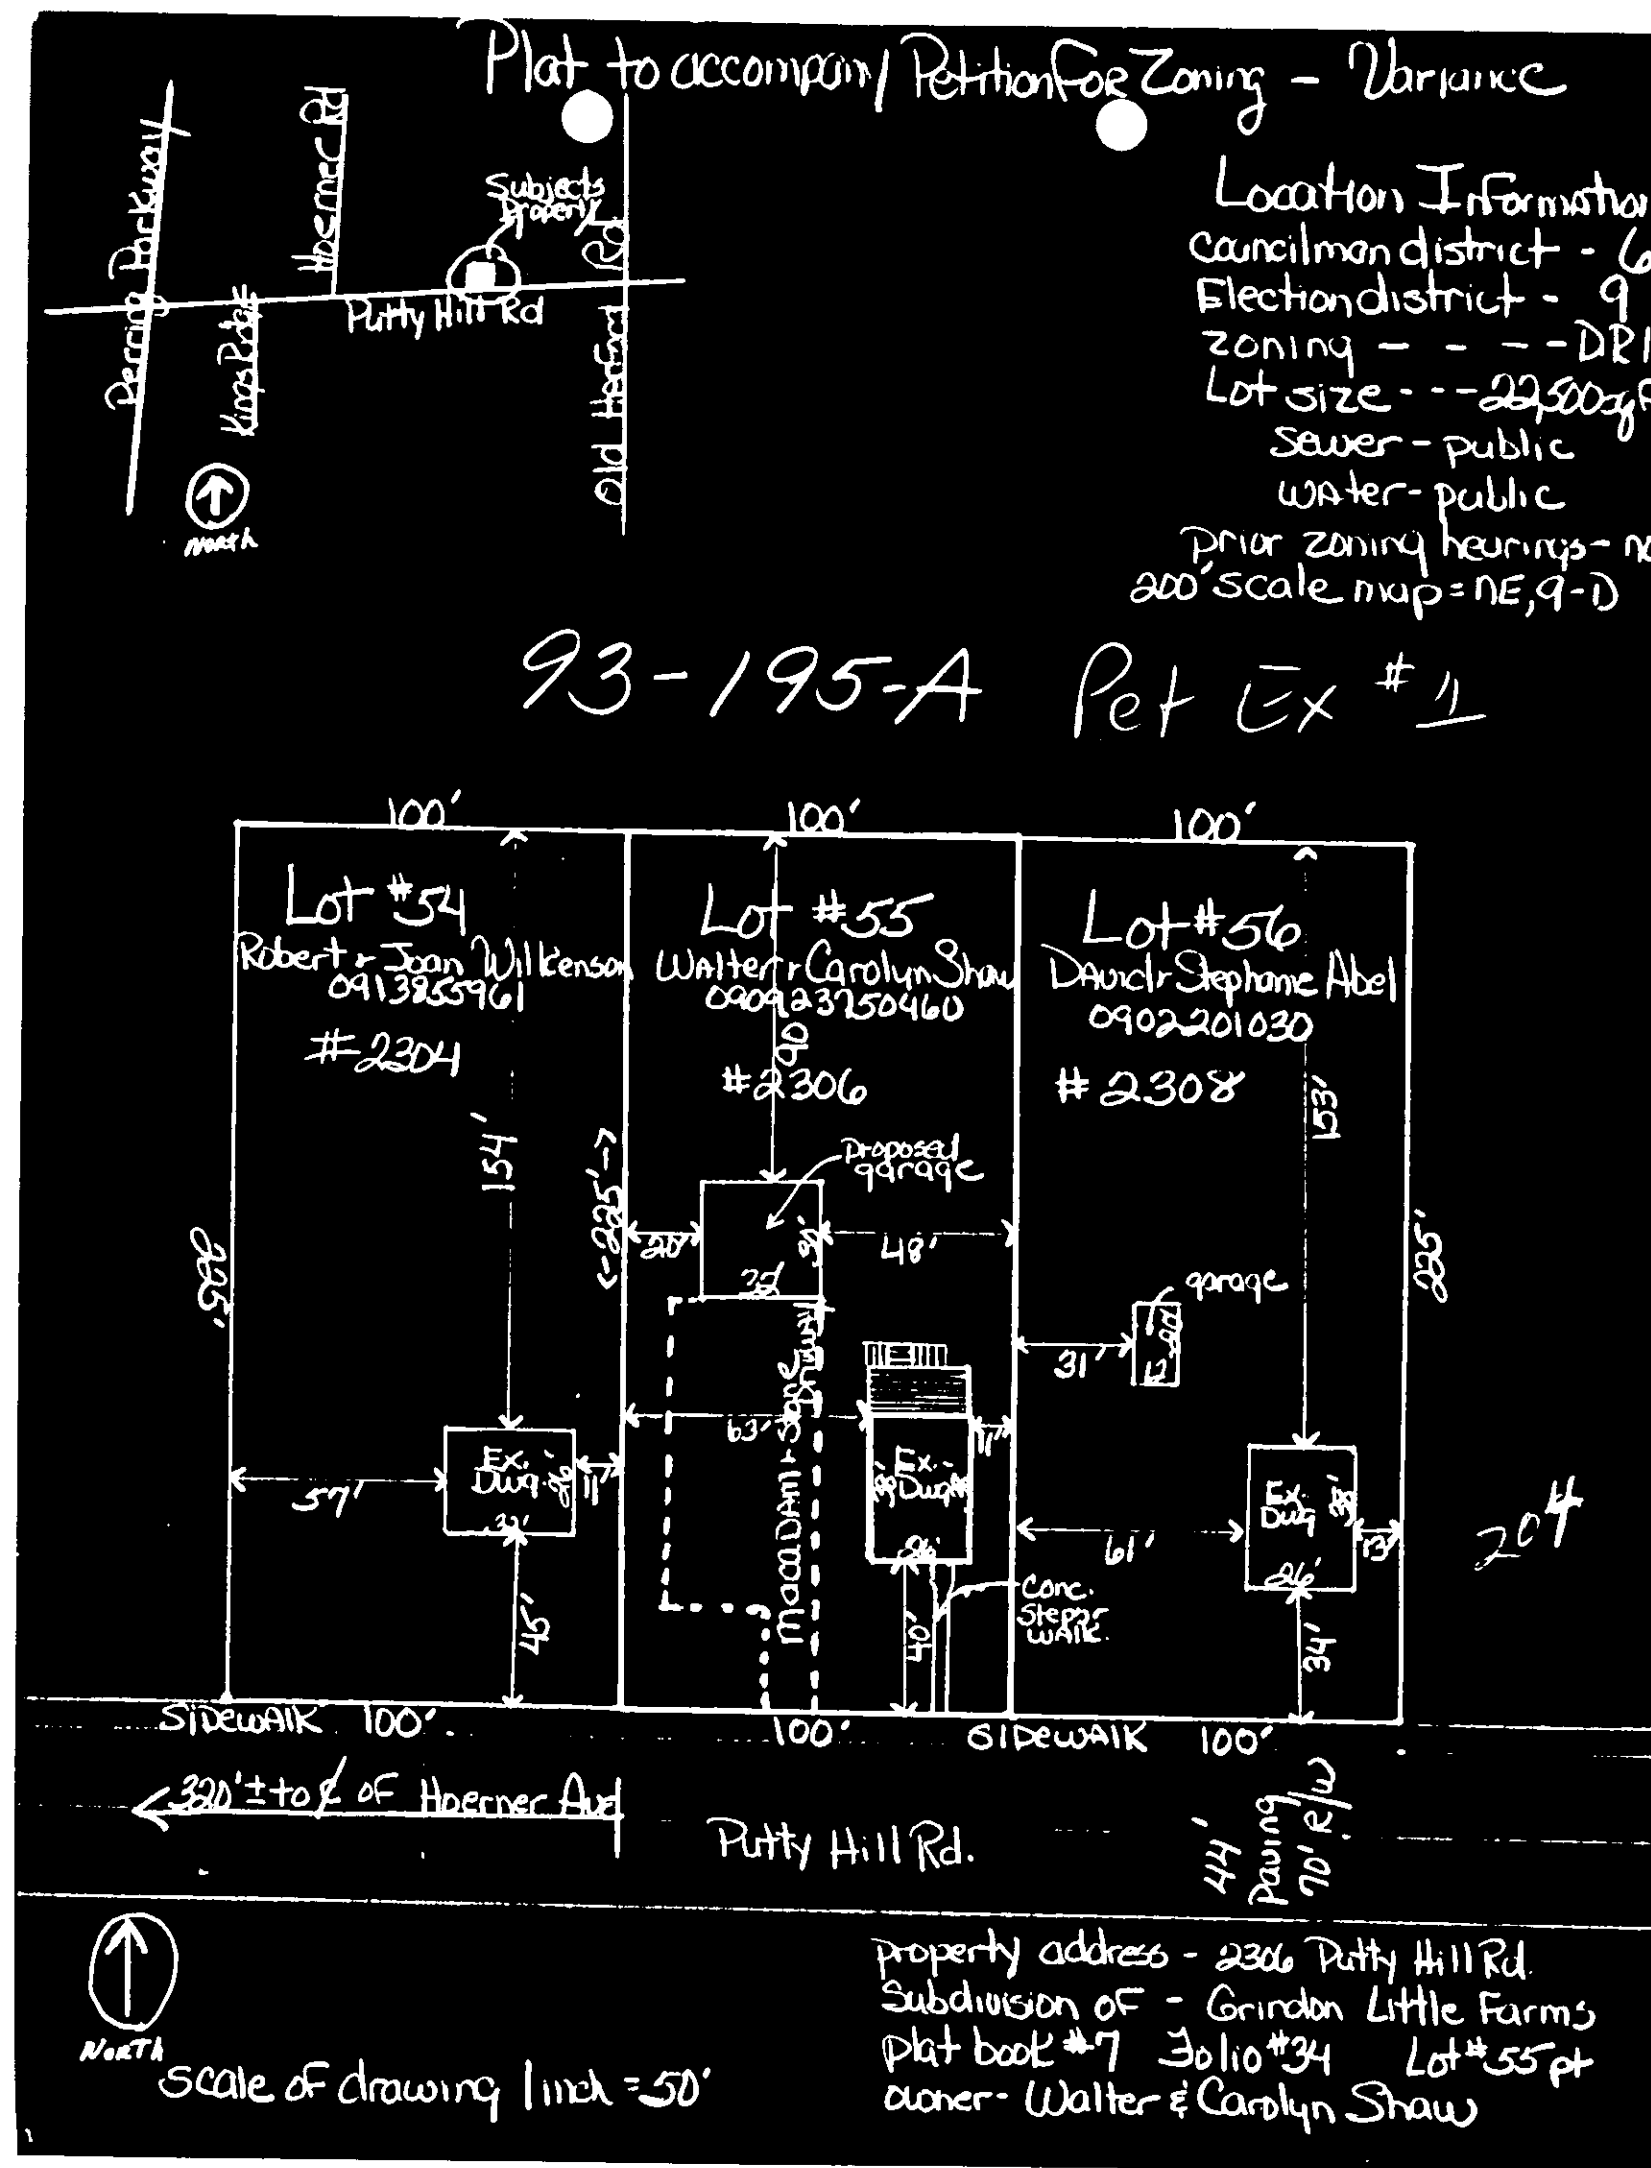 Plat to accompany Petition For Zoning - Variance
Perring Parkway
Hoerner Rd
Subjects
Property
Putty Hill Rd
Kings Ridge
Old Harford Rd.
North
Location Information
Councilman district - 6
Election district - 9
zoning - - - - DR1
Lot size - - - 22,500 sq F
Sewer - public
water - public
prior zoning hearings - no
200' scale map = NE, 9-D
93-195-A Pet Ex #1
100' 100' 100'
Lot #54
Robert & Joan Wilkenson
0913855961
#2304
154'
225'
57'
Ex.
Dwg.
26'
32'
11'
45'
<-225'->
Lot #55
Walter & Carolyn Shaw
090923750460
90
#2306
proposed
garage
20'
30'
32'
48'
Macadam & Stone
Driveway
63'
11'
Ex.
Dwg
38'
26'
40'
Conc.
Steps &
walk.
Lot #56
David & Stephanie Abel
0902201030
#2308
153'
225'
garage
31'
12
20
61'
Ex.
Dwg
38'
26'
13'
34'
204
Sidewalk 100' 100' Sidewalk 100'
320' ± to ℄ of Hoerner Ave
Putty Hill Rd.
44'
Paving
70' R/W
North
scale of drawing 1 inch = 50'
property address - 2306 Putty Hill Rd.
Subdivision of - Grindon Little Farms
plat book #7 Folio #34 Lot #55 pt
owner - Walter & Carolyn Shaw